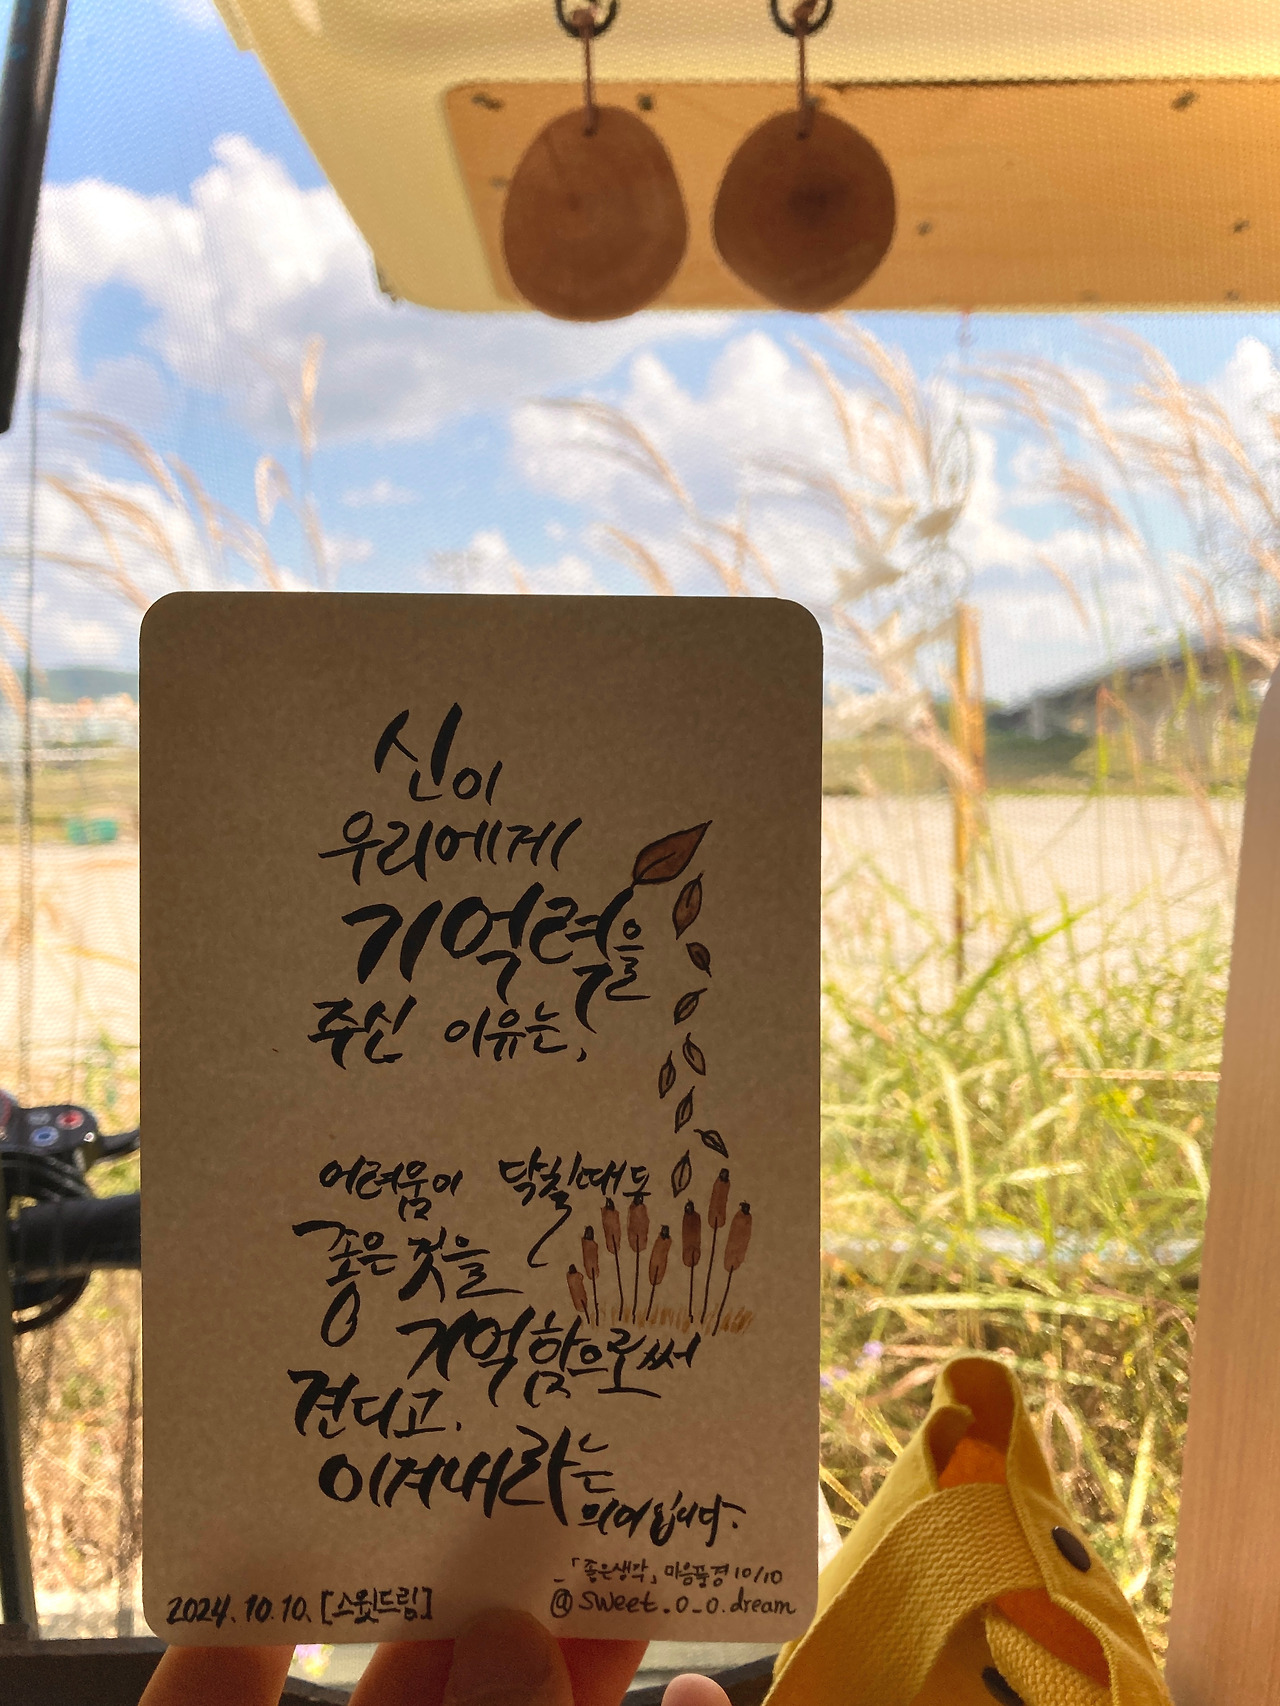 신이
우리에게
기억력을
주신 이유는,
어려움이 닥칠때 등
좋은 것을
기억함으로써
견디고,
이겨내라는
의미입니다.
_「좋은생각」 마음풀경 10/10
2024. 10. 10. [스윗드림]
@ sweet._o_o.dream